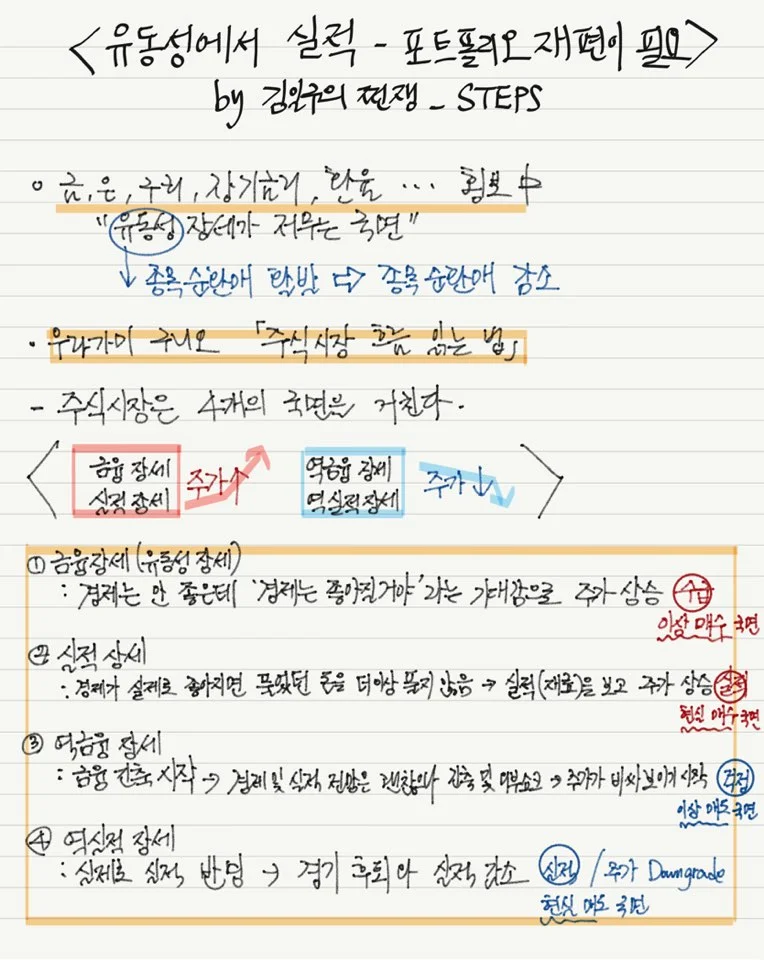 <유동성에서 실적 - 포트폴리오 재편이 필요>
by 김일구의 쩐쟁 - STEPS
○ 금, 은, 구리, 장기금리, 환율 ... 횡보 中
"유동성 장세가 저무는 국면"
↓ 종목 순환매 활발 ⇨ 종목 순환매 감소
· 우라가미 구니오 「주식시장 흐름 읽는 법」
- 주식시장은 4개의 국면을 거친다.
금융 장세 실적 장세 주가↑ 역금융 장세 역실적 장세 주가↓
① 금융장세 (유동성 장세)
: 경제는 안 좋은데 '경제는 좋아질거야'라는 기대감으로 주가 상승 수급
이상 매수 국면
② 실적 장세
: 경제가 실제로 좋아지면 풀었던 돈을 더이상 풀지 않음 → 실적(재료)을 보고 주가 상승 실적
현실 매수 국면
③ 역금융 장세
: 금융 긴축 시작 → 경제 및 실적 전망은 괜찮으나 긴축 및 외부쇼크 → 주가가 비싸 보이기 시작 걱정
이상 매도 국면
④ 역실적 장세
: 실제로 실적 반영 → 경기 후퇴와 실적 감소 실적 / 주가 Downgrade
현실 매도 국면